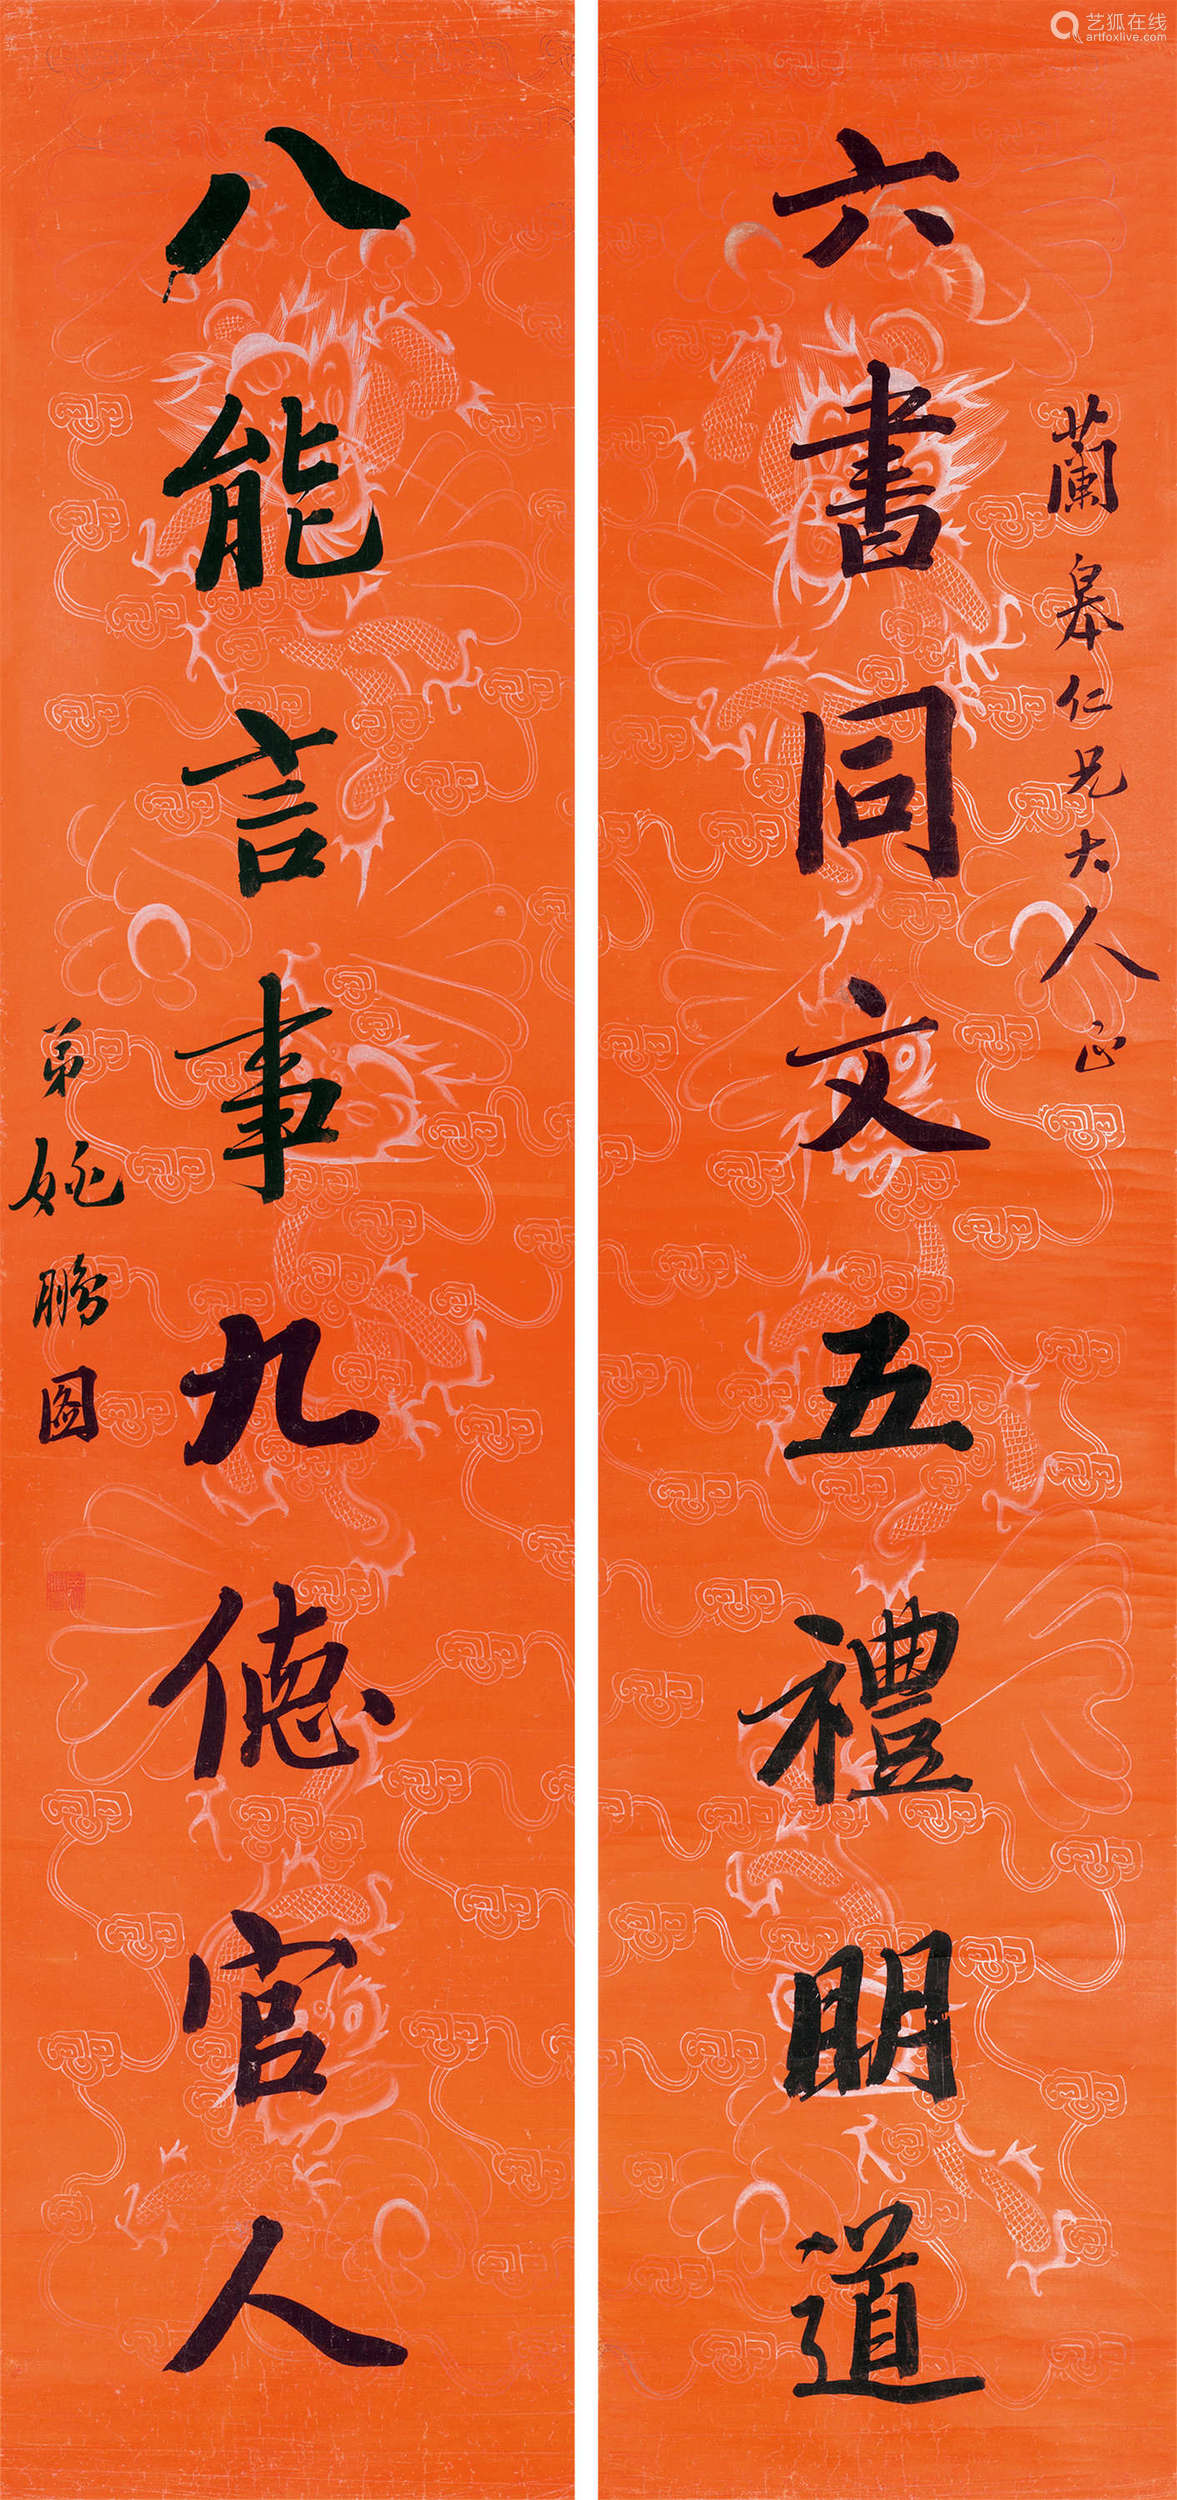 艺狐在线
artfoxlive.com
蘭皋仁兄大人正
六書同文五禮明道
八能言事九德官人
弟姚鵬圖